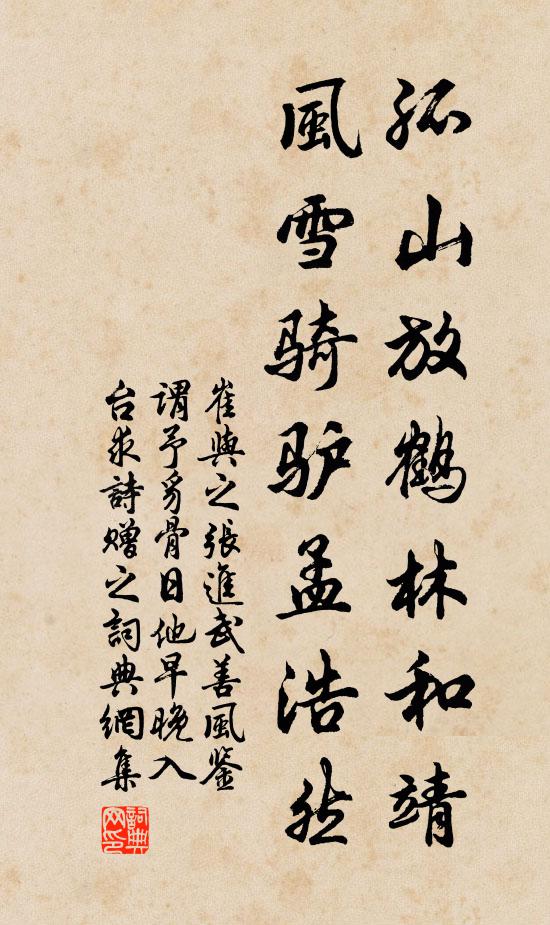 孤山放鶴林和靖
風雪骑驴孟浩然
崔與之張進武善風鉴
謂予豸骨日他早晚入
台求詩赠之詞典網集
詞典
网印